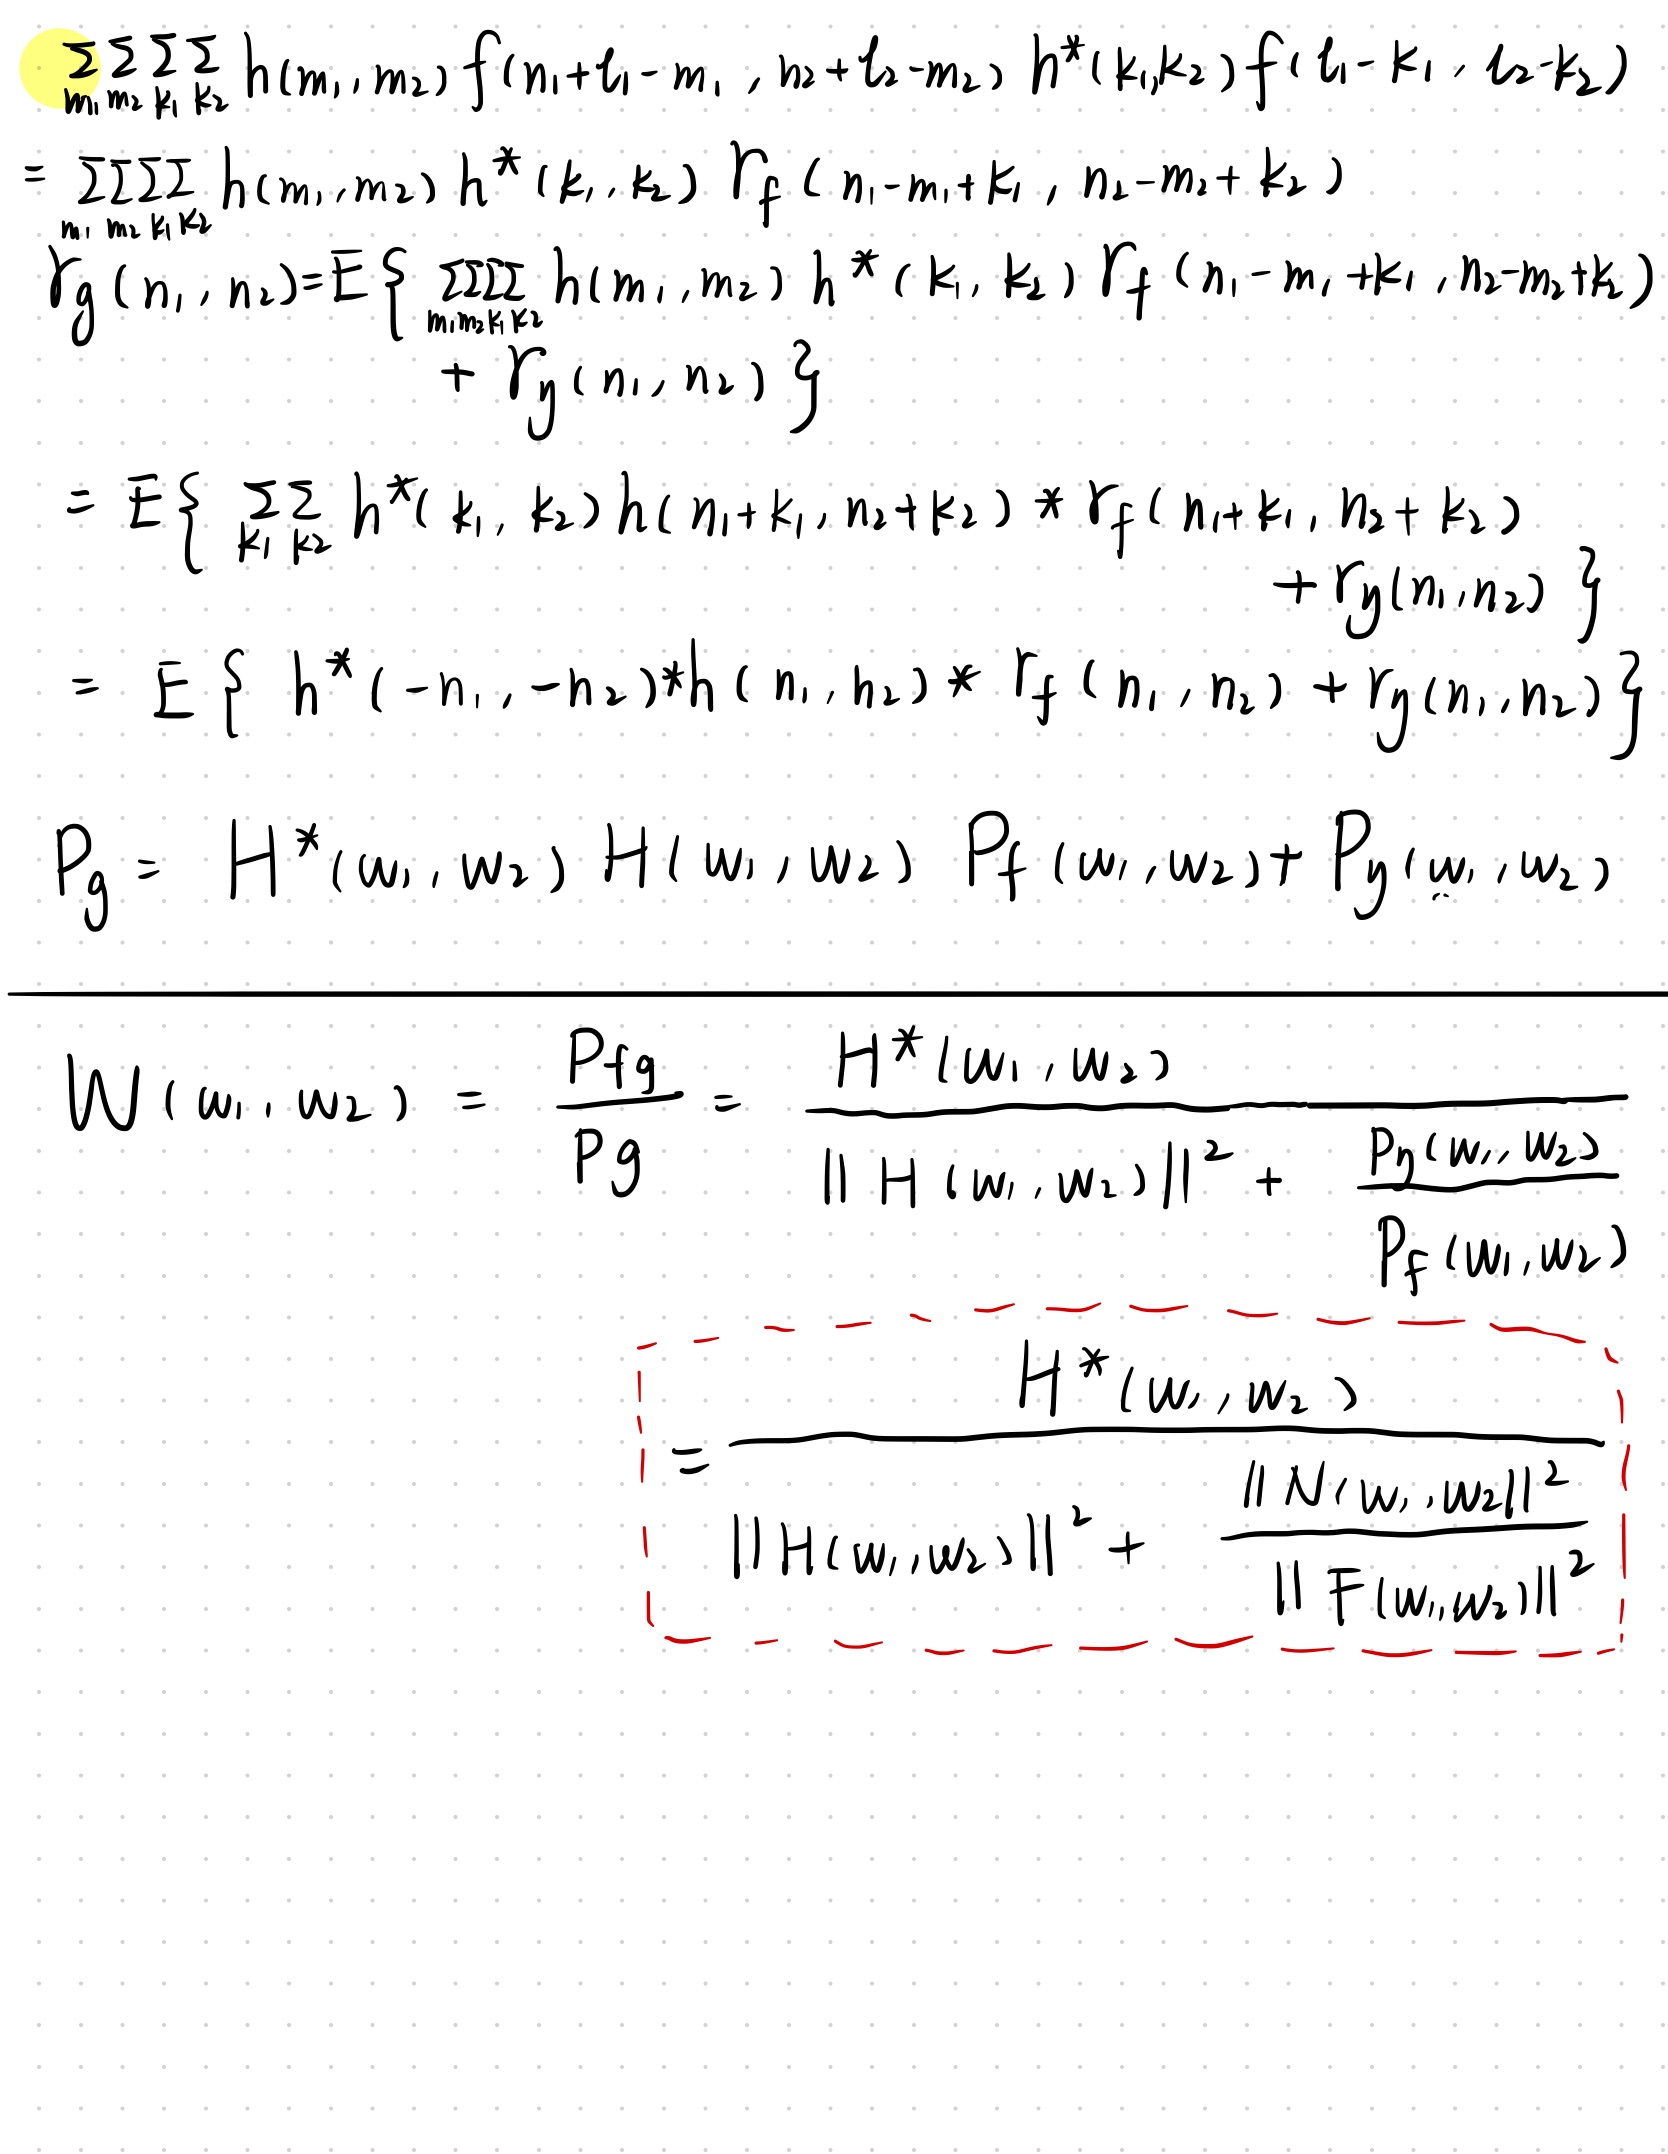 Σ Σ Σ Σ h(m₁, m₂) f(n₁+l₁-m₁, n₂+l₂-m₂) h*(k₁,k₂) f(l₁-k₁, l₂-k₂)
m₁ m₂ k₁ k₂
= ΣΣΣΣ h(m₁, m₂) h*(k₁, k₂) r_f(n₁-m₁+k₁, n₂-m₂+k₂)
m₁ m₂ k₁ k₂
r_g(n₁, n₂) = E{ ΣΣΣΣ h(m₁, m₂) h*(k₁, k₂) r_f(n₁-m₁+k₁, n₂-m₂+k₂)
m₁ m₂ k₁ k₂
+ r_η(n₁, n₂) }
= E{ Σ Σ h*(k₁, k₂) h(n₁+k₁, n₂+k₂) * r_f(n₁+k₁, n₂+k₂)
k₁ k₂
+ r_η(n₁, n₂) }
= E{ h*(-n₁, -n₂)*h(n₁, n₂) * r_f(n₁, n₂) + r_η(n₁, n₂) }
P_g = H*(w₁, w₂) H(w₁, w₂) P_f(w₁, w₂) + P_η(w₁, w₂)
W(w₁, w₂) = P_fg / P_g = H*(w₁, w₂) / (||H(w₁, w₂)||² + P_η(w₁, w₂) / P_f(w₁, w₂))
= H*(w₁, w₂) / (||H(w₁, w₂)||² + ||N(w₁, w₂||² / ||F(w₁, w₂)||²)